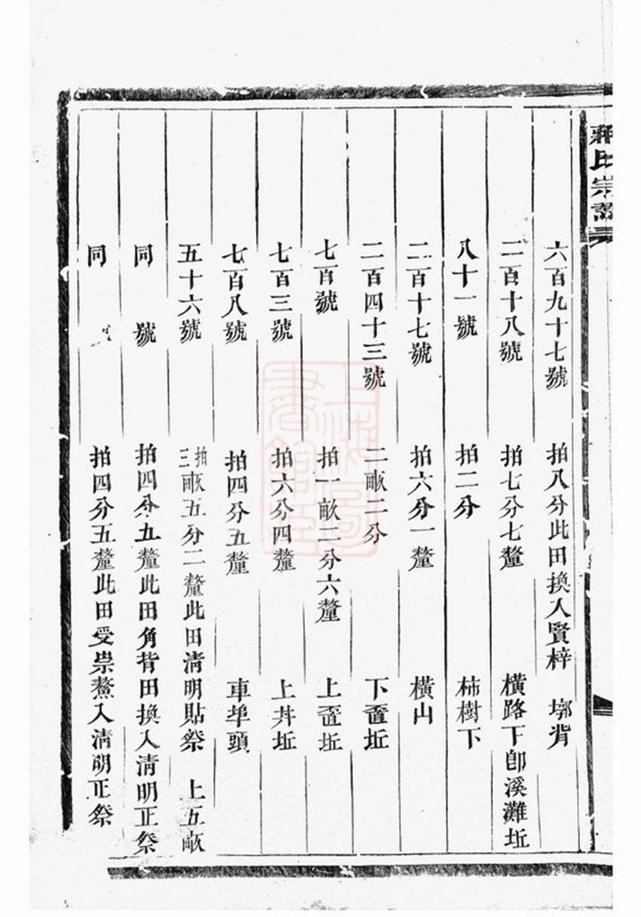 蔣氏宗譜
六百九十七號 拍八分此田換入賢梓 墎背
二百十八號 拍七分七釐 橫路下卽溪灘坵
八十一號 拍二分 柿樹下
二百十七號 拍六分一釐 橫山
二百四十三號 二畝二分 下畓坵
七百號 拍一畝三分六釐 上畓坵
七百三號 拍六分四釐 上井坵
七百八號 拍四分五釐 車埠頭
五十六號 拍三畝五分二釐此田清明貼祭 上五畝
同 號 拍四分五釐此田角背田換入清明正祭
同 拍四分五釐此田受崇鰲入清明正祭